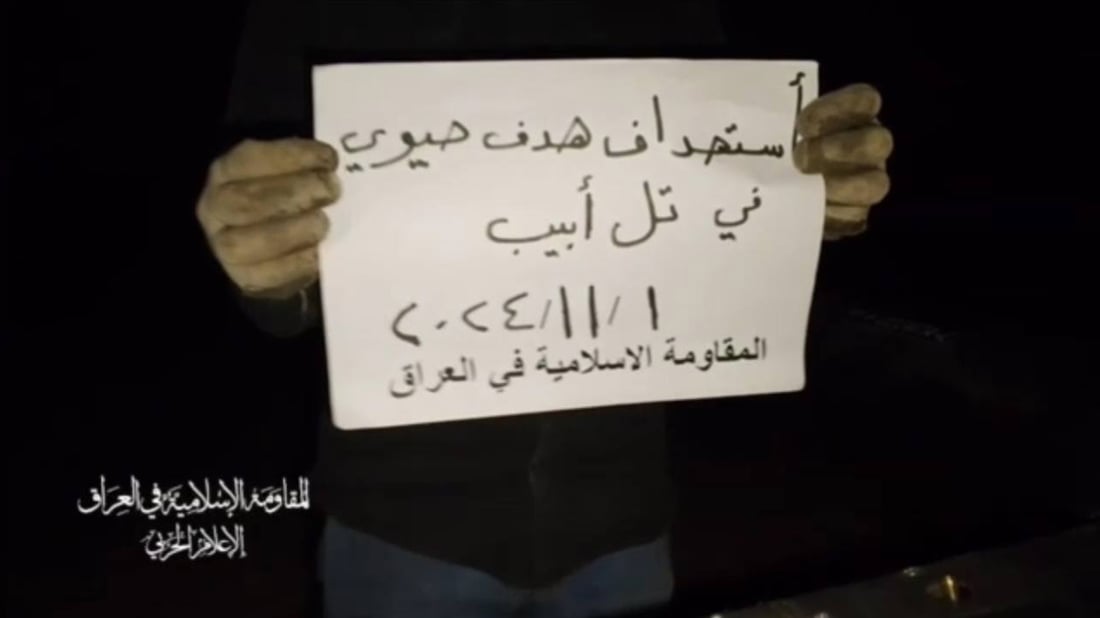 أستهداف هدف حيوي
في تل أبيب
٢٠٢٤/١١/١
المقاومة الاسلامية في العراق
المقاومة الإسلامية في العراق
الإعلام الحربي